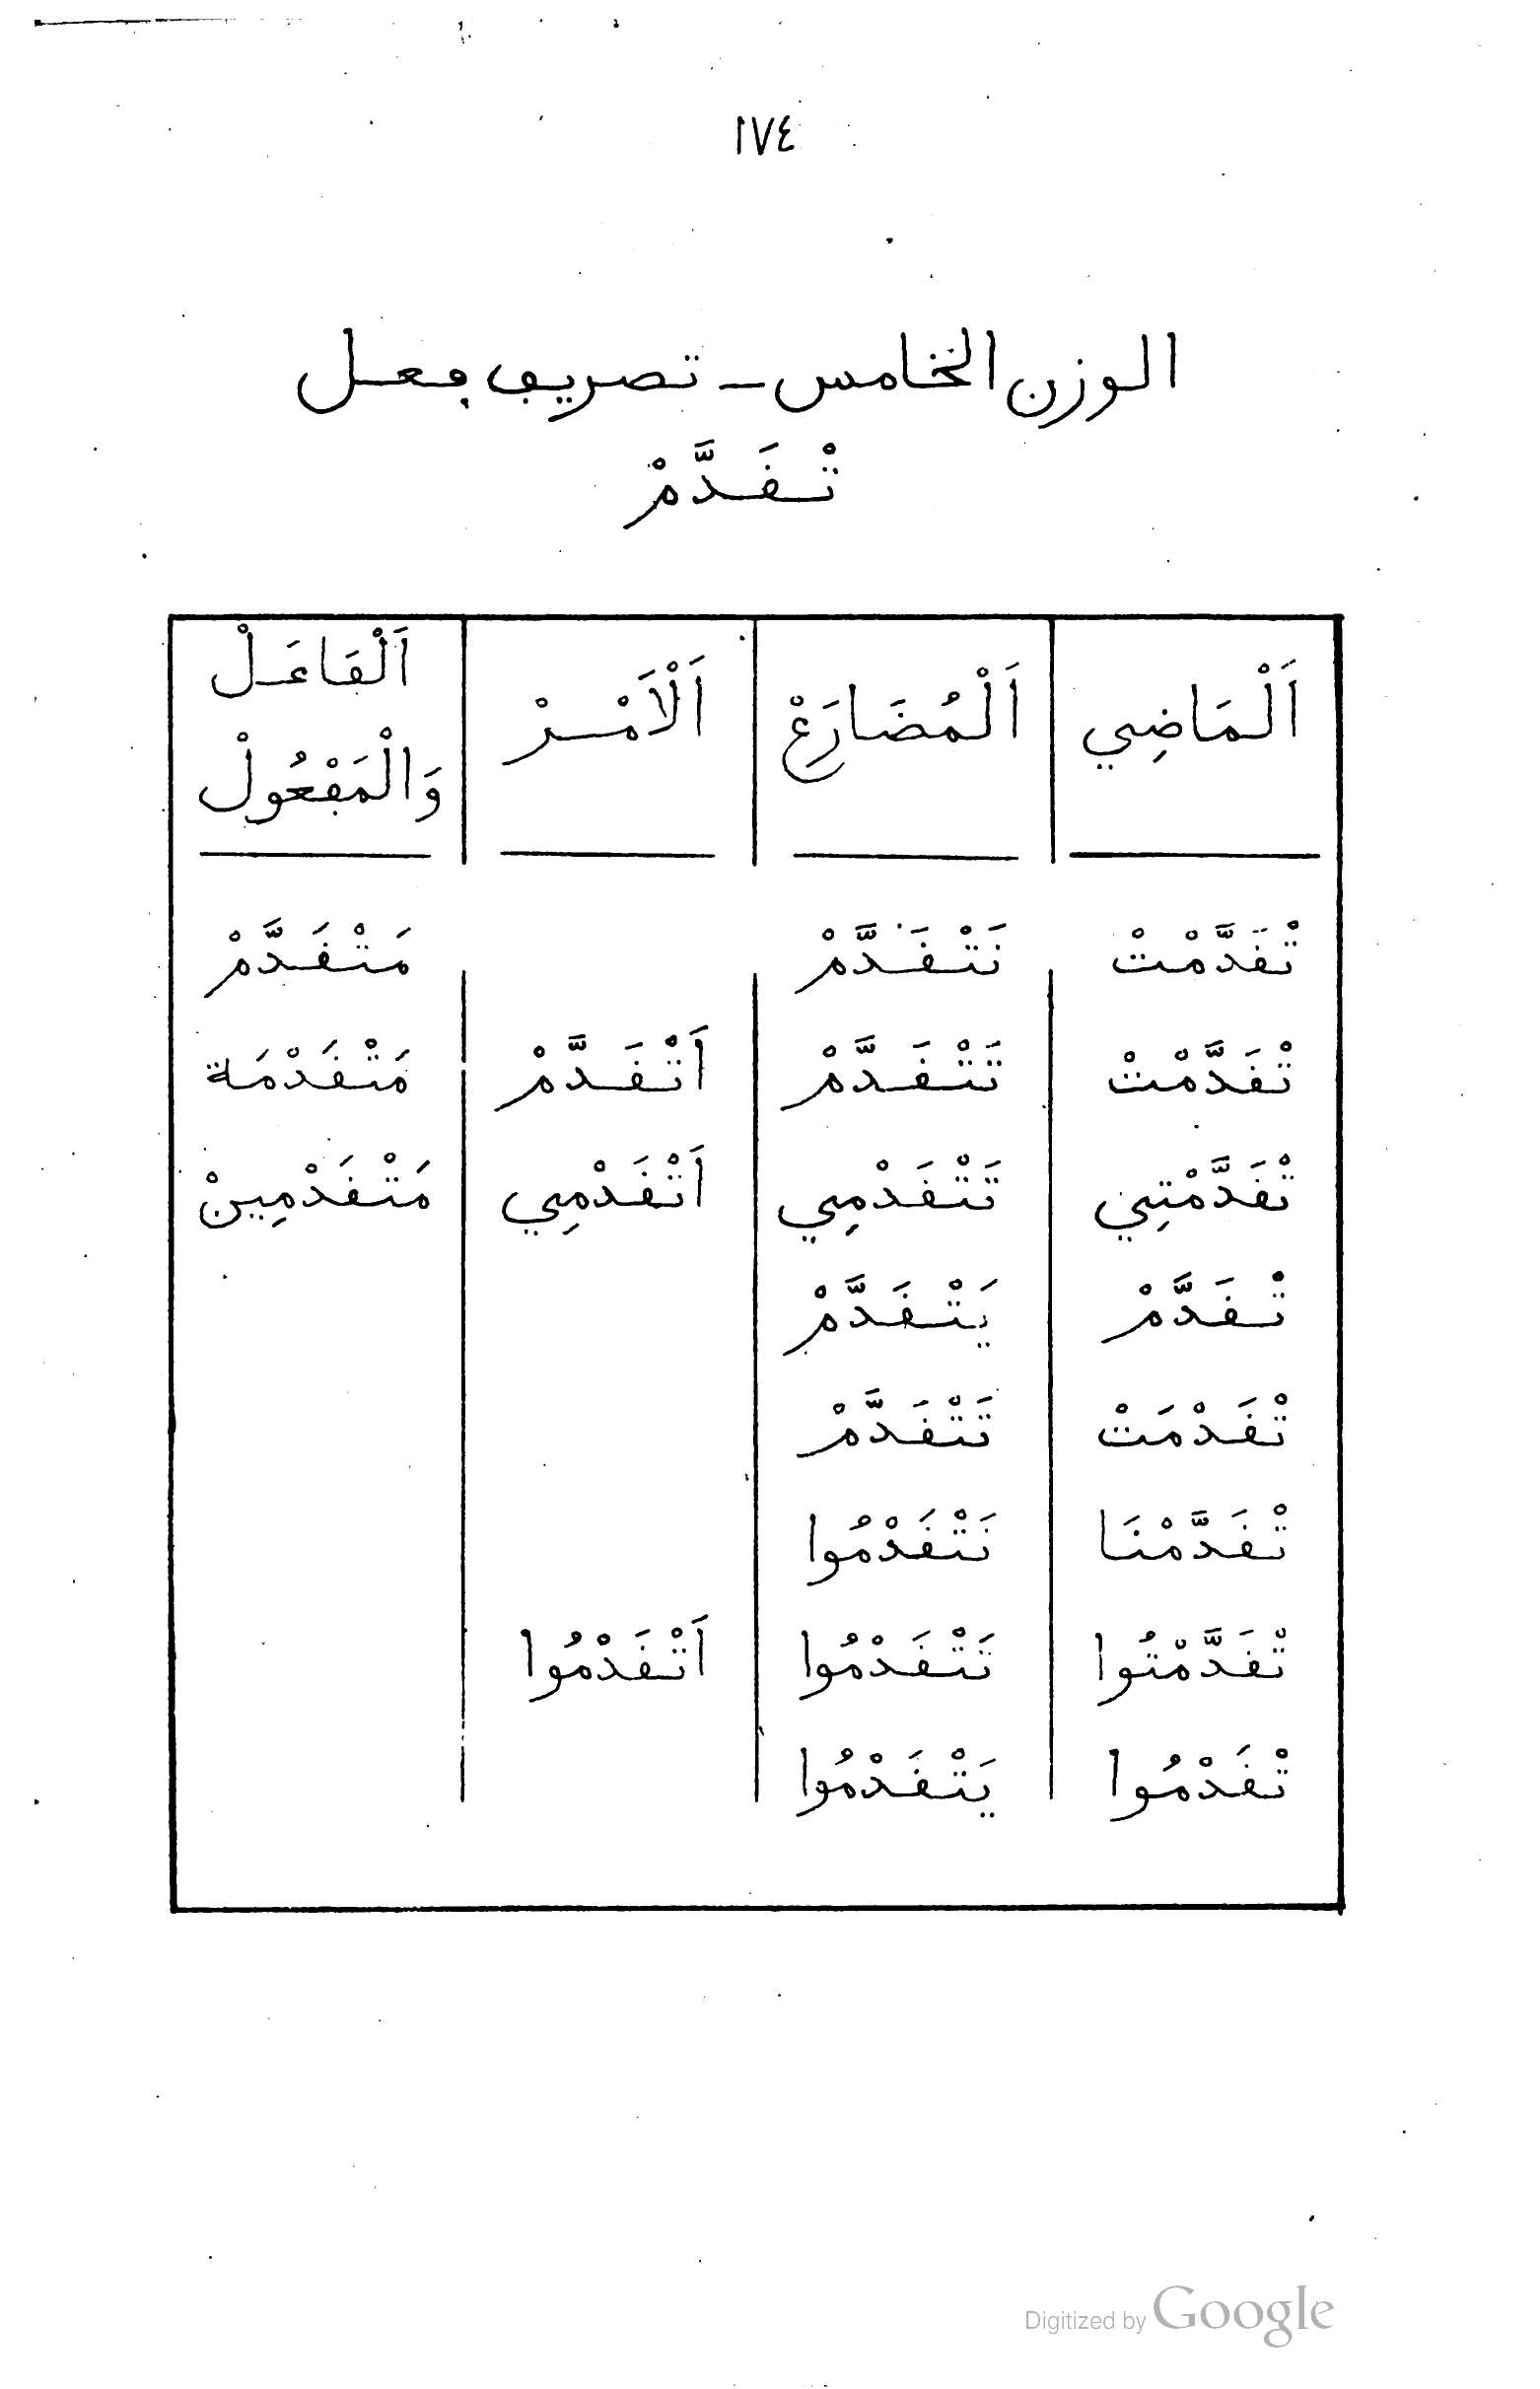 ١٧٤
الوزن الخامس - تصريف فعل
تْقَدَّمْ
اَلْمَاضِي اَلْمُضَارَعْ اَلْاَمْرْ اَلْفَاعَلْ وَالْمَفْعُولْ
تْقَدَّمْتْ نَتْقَدَّمْ مَتْقَدَّمْ
تْقَدَّمْتْ تَتْقَدَّمْ اَتْقَدَّمْ مَتْقَدْمَة
تْقَدَّمْتِي تَتْقَدْمِي اَتْقَدْمِي مَتْقَدْمِينْ
تْقَدَّمْ يَتْقَدَّمْ
تْقَدْمَتْ تَتْقَدَّمْ
تْقَدَّمْنَا نَتْقَدْمُوا
تْقَدَّمْتُوا تَتْقَدْمُوا اَتْقَدْمُوا
تْقَدْمُوا يَتْقَدْمُوا
Digitized by Google